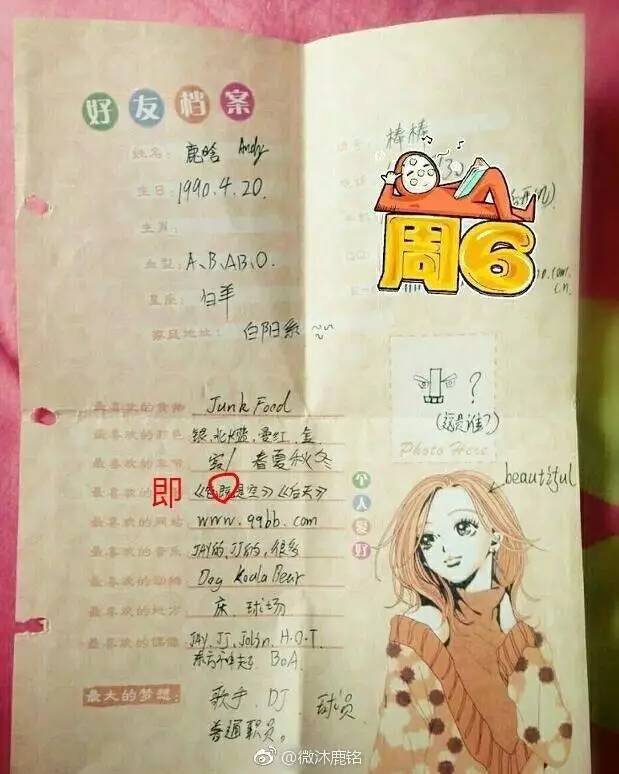 好友档案
姓名：鹿晗 Andy
生日：1990.4.20.
生肖：
血型：A、B、AB、O.
星座：白羊
家庭地址：白阳系
棒棒
周6
最喜欢的食物 Junk Food
最喜欢的颜色 银、北大蓝、曼红、金
最喜欢的季节 春夏秋冬
即
最喜欢的 《色既是空》《后天》
最喜欢的网站 www.99bb.com
最喜欢的音乐 JAY的，JJ的，很多
最喜欢的动物 Dog Koala Bear
最喜欢的地方 床、球场
最喜欢的偶像 JAY. JJ. Jolin. H.O.T.
东方神起 BoA.
最大的梦想：歌手、DJ、球员
普通职员。
？
(这是谁？)
Photo Here
个人喜好
beautiful
@微沐鹿铭